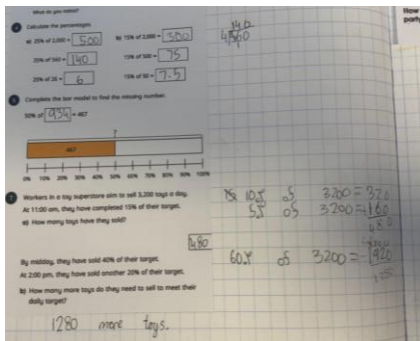 What do you notice?
4 Calculate the percentages.
a) 25% of 2,000 = 500
b) 15% of 2,000 = 300
25% of 560 = 140
15% of 500 = 75
25% of 26 = 6
15% of 50 = 7.5
5 Complete the bar model to find the missing number.
50% of 934 = 467
467
0% 10% 20% 30% 40% 50% 60% 70% 80% 90% 100%
7 Workers in a toy superstore aim to sell 3,200 toys a day.
At 11:00 am, they have completed 15% of their target.
a) How many toys have they sold?
480
By midday, they have sold 40% of their target.
At 2:00 pm, they have sold another 20% of their target.
b) How many more toys do they need to sell to meet their
daily target?
1280 more toys.
140
10% of 3200 = 320
5% of 3200 = 160
480
60% of 3200 = 1920
1280
How
party